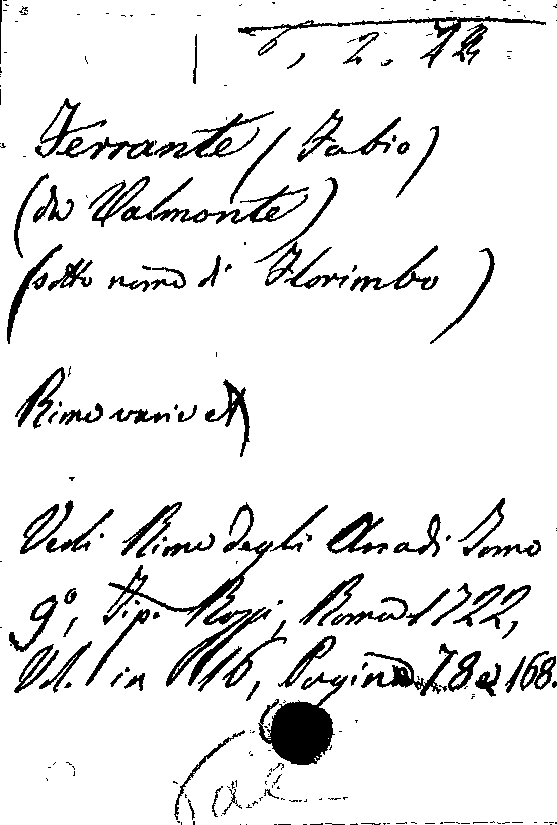 6, 2. 72
Ferrante (Fabio)
(da Valmonte)
(sotto nome di Florimbo)
Rime varie
Vedi Rime degli Arcadi Tomo
9º, Tip. Rossi, Roma 1722,
Vol. 1 in 16, Pagina 78 e 168.